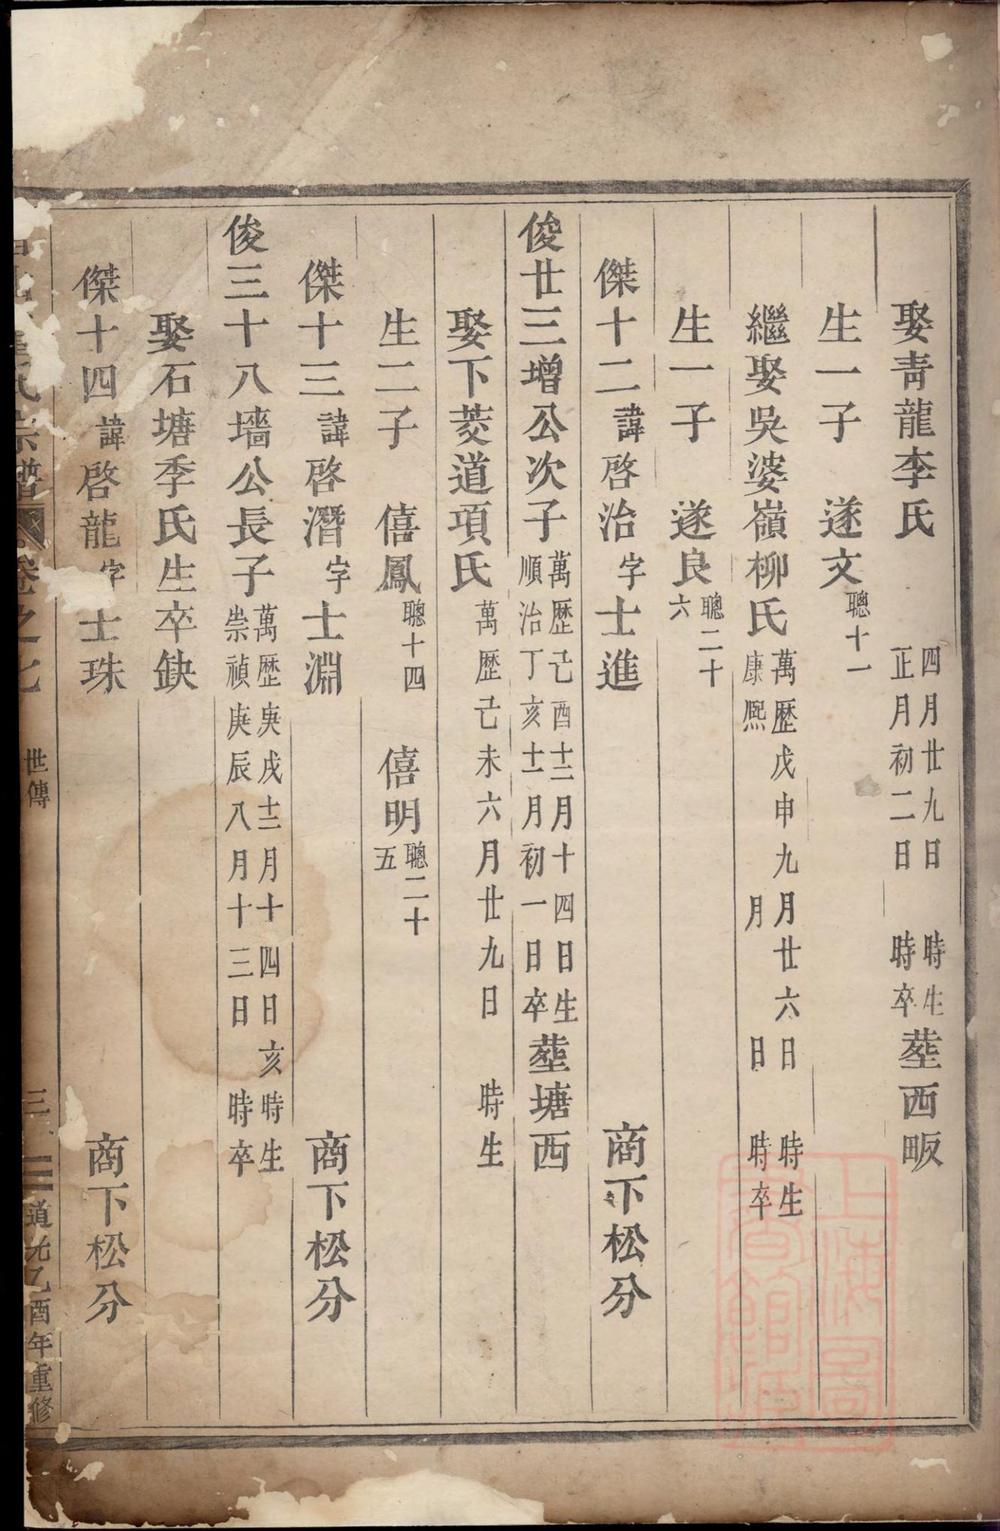 娶青龍李氏 四月廿九日 時生 正月初二日 時卒 塟西畈
生一子 遂文 聰十一
繼娶吳婆嶺柳氏 萬歷戊申九月廿六日 時生 康熙 月 日 時卒
生一子 遂良 聰二十六
傑十二 諱啓治 字士進 商下松分
俊廿三增公次子 萬歷己酉十二月十四日生 順治丁亥十一月初一日卒 塟塘西
娶下菱道項氏 萬歷己未六月廿九日 時生
生二子 僖鳳 聰十四 僖明 聰二十五
傑十三 諱啓潛 字士淵 商下松分
俊三十八墻公長子 萬歷庚戌十二月十四日亥時生 崇禎庚辰八月十三日 時卒
娶石塘季氏生卒缺
傑十四 諱啓龍 字士珠 商下松分
氏宗譜 卷之七 世傳 三 道光乙酉年重修
上海圖書館藏